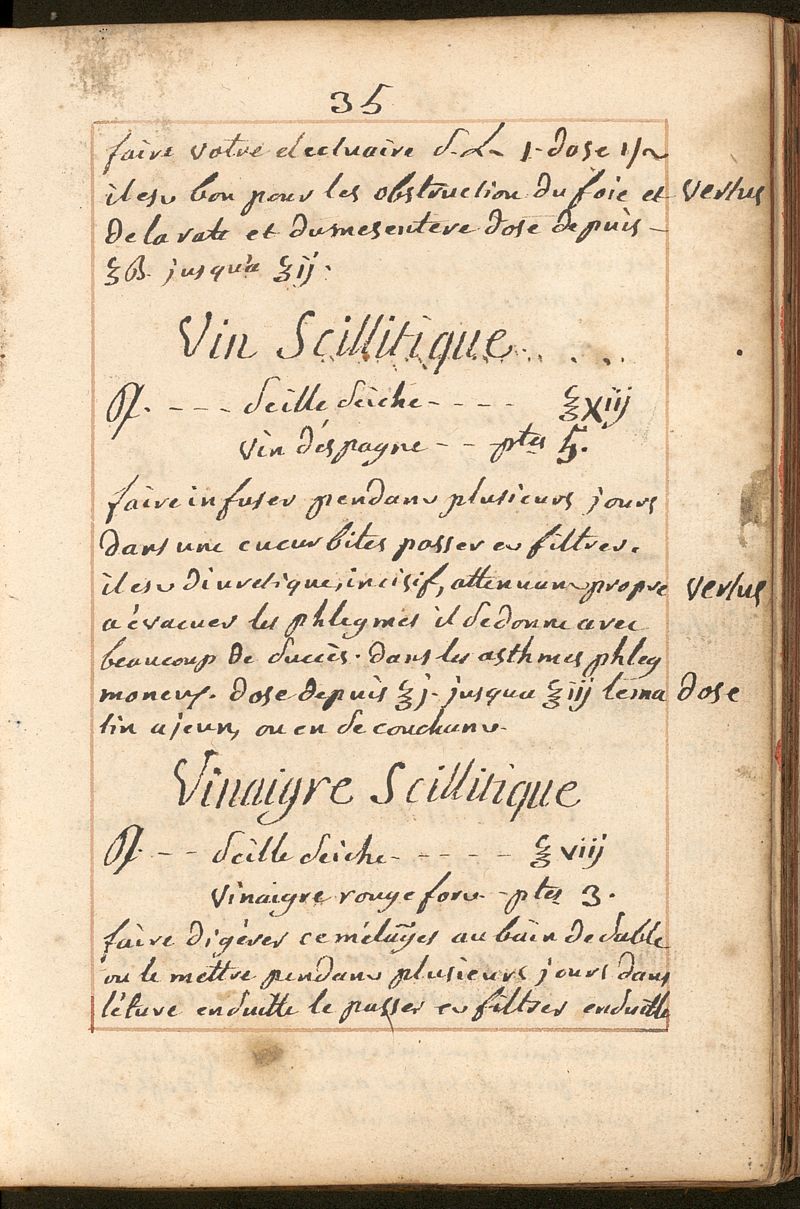 35
faire votre electuaire S. L. 1. dose 1/2
il est bon pour les obstruction du foie et vertus
de la rate et du mesentere dose depuis –
℥ß. jusqu'a ℥ij.
Vin Scillitique. . . .
℞. - - - Scille seiche - - - - ℥xiij
vin d'éspagne - - ptes 5.
faire infuser pendant plusieurs jours
dans une cucurbites passer et filtrer.
il est diuretique, incisif, attenuant propre vertus
a évacuer les phlegmes il se donne avec
beaucoup de succès. dans les asthmes phleg
moneux. dose depuis ℥j. jusqua ℥iij le ma dose
tin a jeun, ou en se couchant.
Vinaigre Scillitique
℞. - - Scille seiche - - - - - ℥viij
vinaigre rouge fort - ptes 3.
faire digérer ce mélanges au bain de sable
ou le mettre pendant plusieurs jours dans
l'étuve ensuitte le passer et filtrer ensuitte